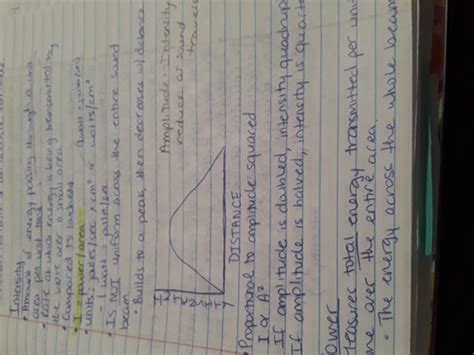 Intensity
• Amount of energy passing through a unit
area per unit time
• Rate at which energy is being transmitted by
the wave over a small area
• Compared to
• I = power/area
• units = joules/sec × cm² or watts/cm²
1 watt = joule/sec
• IS NOT uniform across the entire sound
beam
• Builds to a peak, then decreases w/ distance
Amplitude: Intensity
reduce as sound
travels
I
N
T
E
N
S
I
T
Y
DISTANCE
• Proportional to amplitude squared
I ∝ A²
If amplitude is doubled, intensity quadrup
If amplitude is halved, intensity is quarte
ower
easures total energy transmitted per uni
me over the entire area.
• The energy across the whole beam